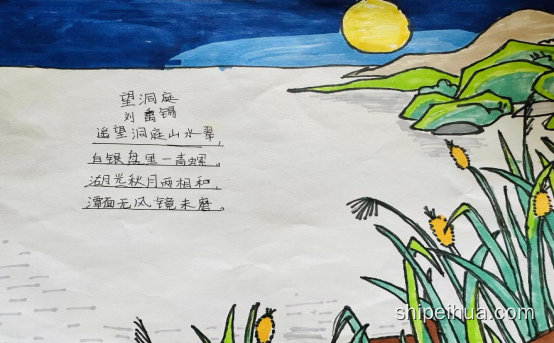 望洞庭
刘禹锡
遥望洞庭山水翠,
白银盘里一青螺。
湖月光秋月两相和,
潭面无风镜未磨。
shipeihua.com